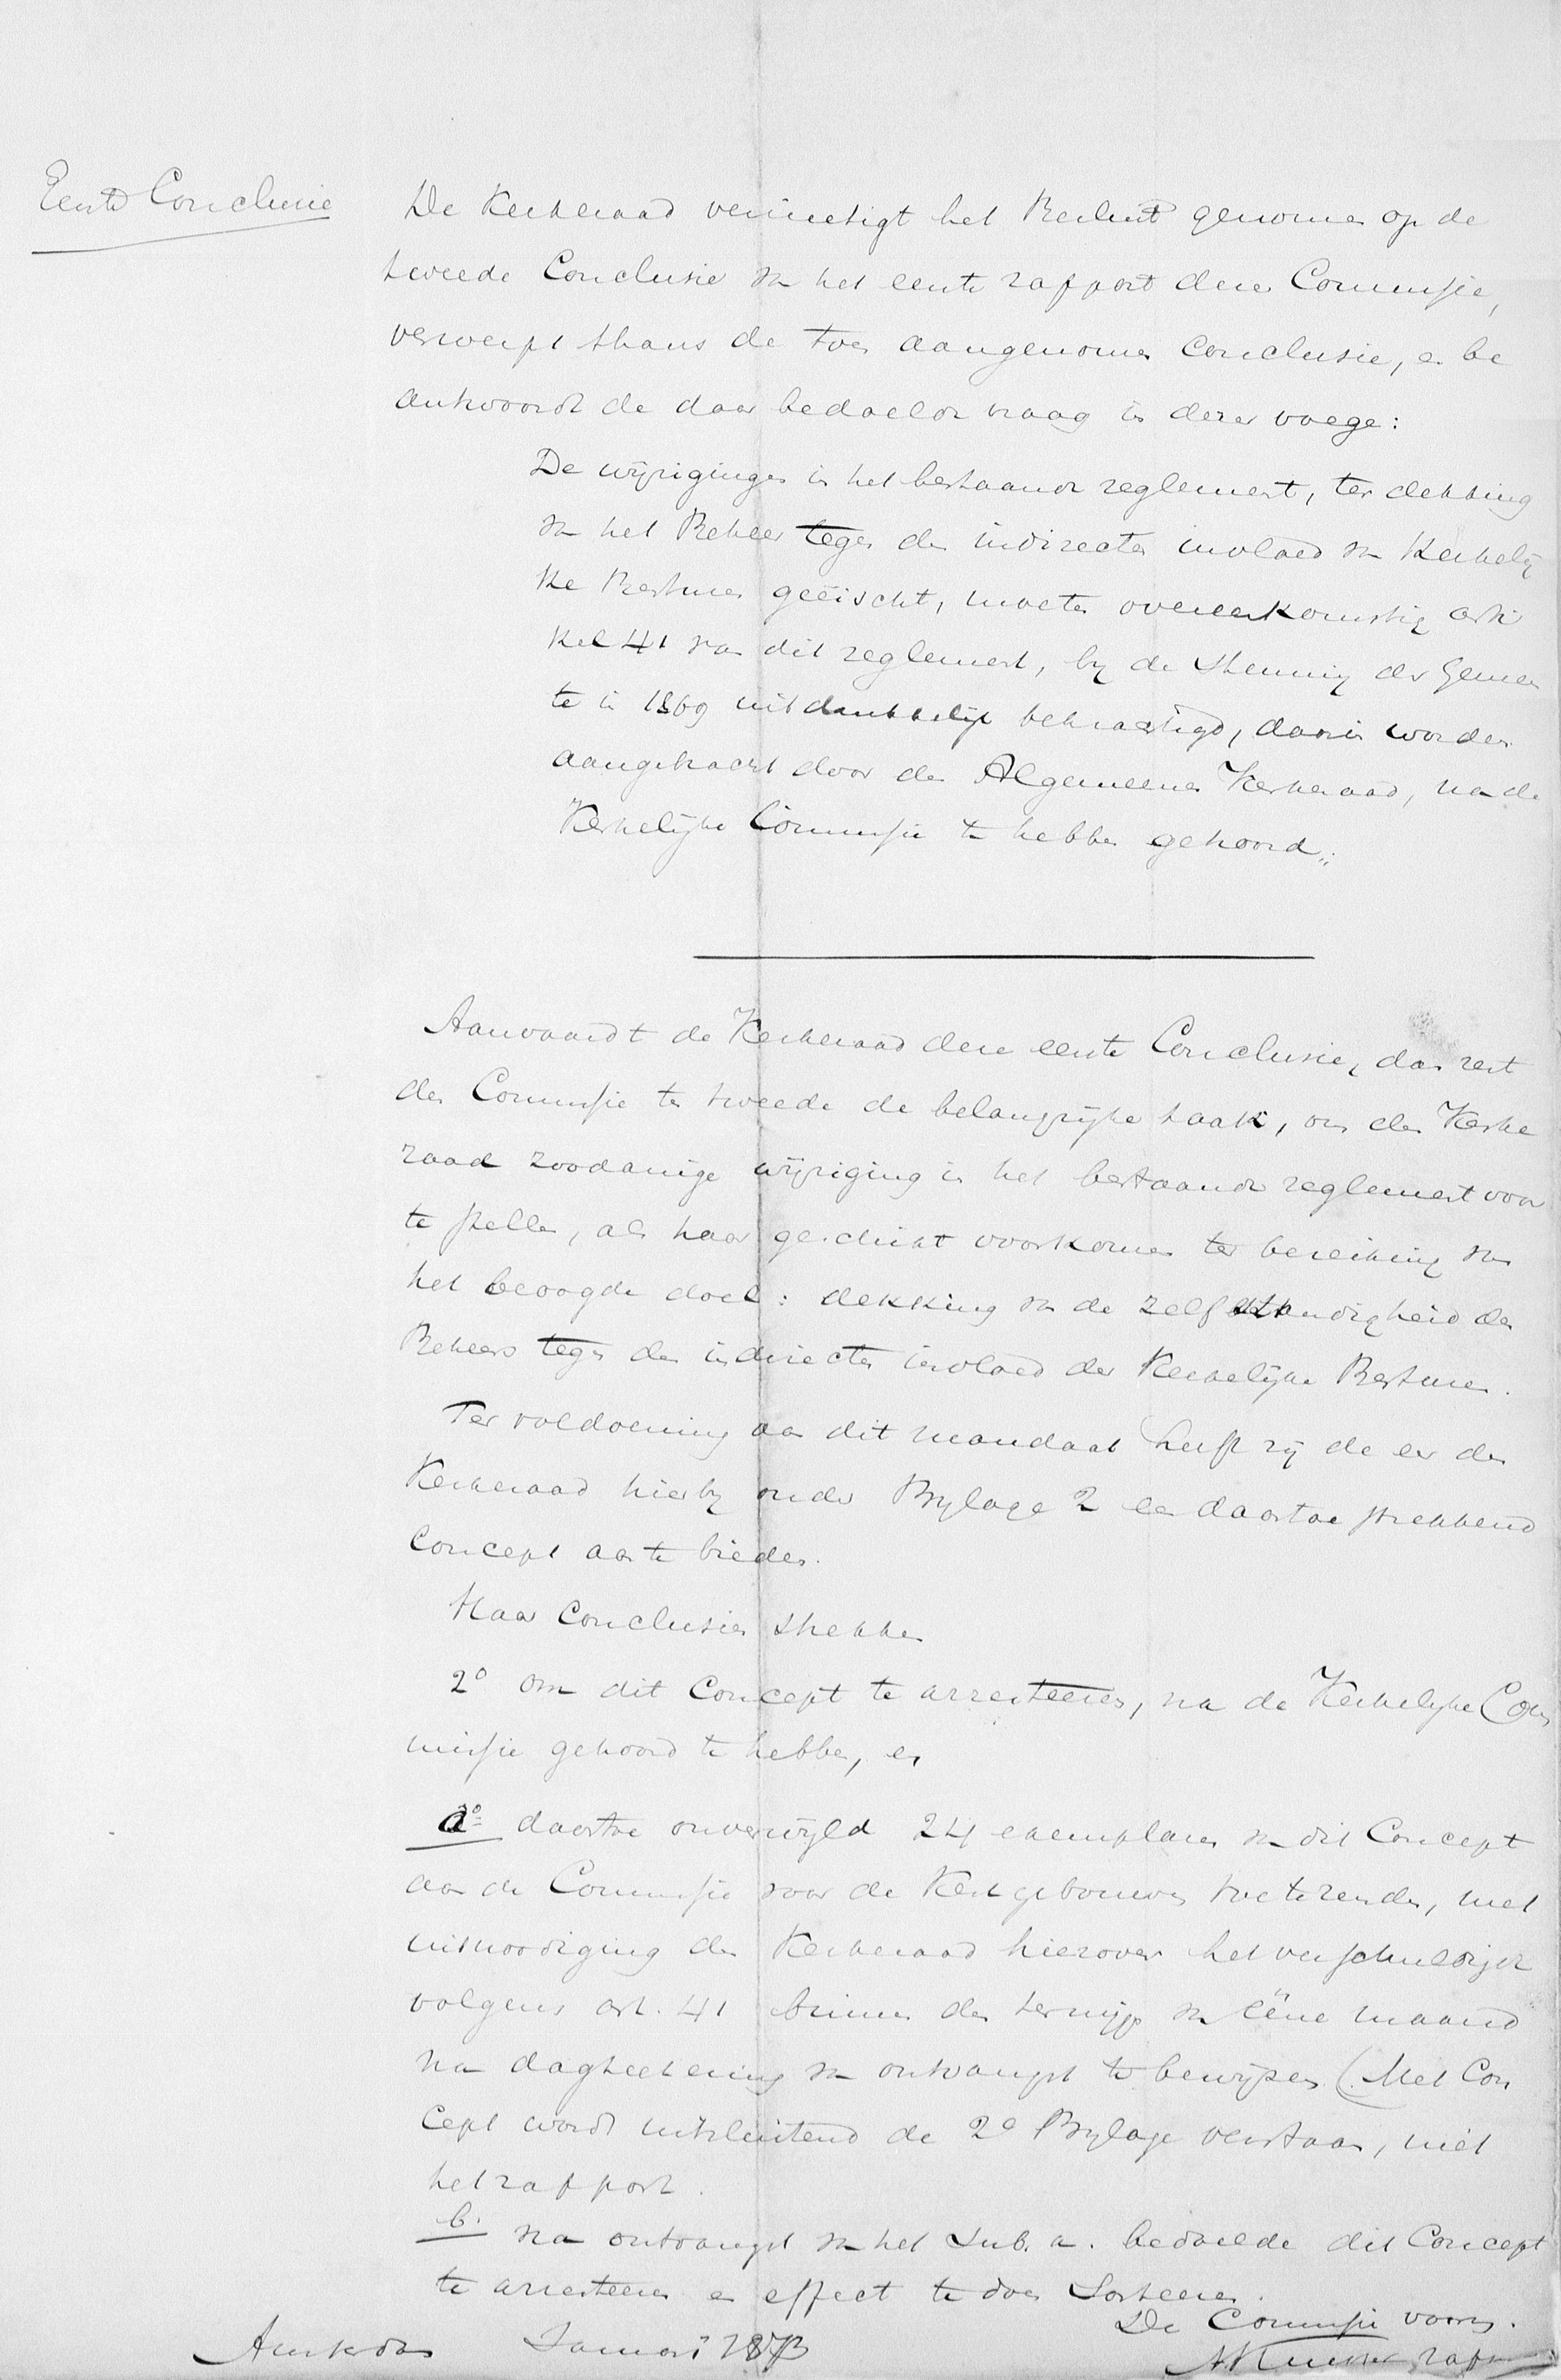 Eerste Conclusie
De Kerkeraad vernietigt het Besluit genomen op de
tweede Conclusie van het eerste rapport dezer Commissie,
verwerpt thans de toen aangenomen conclusie, en be
antwoordt de daar bedoelde vraag in dezer voege:
De wijzigingen in het bestaande reglement, ter dekking
van het Beheer tegen den indirecten invloed van Kerkelij
ke Besturen geëischt, moeten overeenkomstig arti
kel 41 van dit reglement, by de stemming der Gemeen
te in 1869 uitdrukkelijk bekrachtigd, daarin worden
aangebracht door den Algemeenen Kerkeraad, na de
Kerkelijke Commissie te hebben gehoord.
Aanvaardt de Kerkeraad deze eerste Conclusie, dan rest
der Commissie ten tweede de belangrijke taak, om den Kerke
raad zoodanige wijziging in het bestaande reglement voor
te stellen, als haar geschikt voorkomen ter bereiking van
het beoogde doel: dekking van de zelfstandigheid des
Beheers tegen den indirecten invloed der Kerkelijke Besturen.
Ter voldoening aan dit mandaat heeft zij de eer den
Kerkeraad hierby onder Bylage 2 een daartoe strekkend
concept aan te bieden.
Haar conclusien strekken
2o om dit Concept te arresteeren, na de Kerkelyke Com
missie gehoord te hebben, en
ao daartoe onverwijld 24 exemplaren van dit Concept
aan de Commissie voor de Kerkgebouwen toe te zenden, met
uitnoodiging den Kerkeraad hierover het verschuldigde
volgens art. 41 binnen den termijn van ééne maand
na dagteekening van ontvangst te bewijzen (Met Con
cept wordt uitsluitend de 2e Bylage verstaan, niet
het rapport.
b. na ontvangst van het sub. a. bedoelde dit Concept
te arresteeren en effect te doen sorteeren.
De Commissie voorn.
Amsterdam Januari 1873
AKuyper rapp